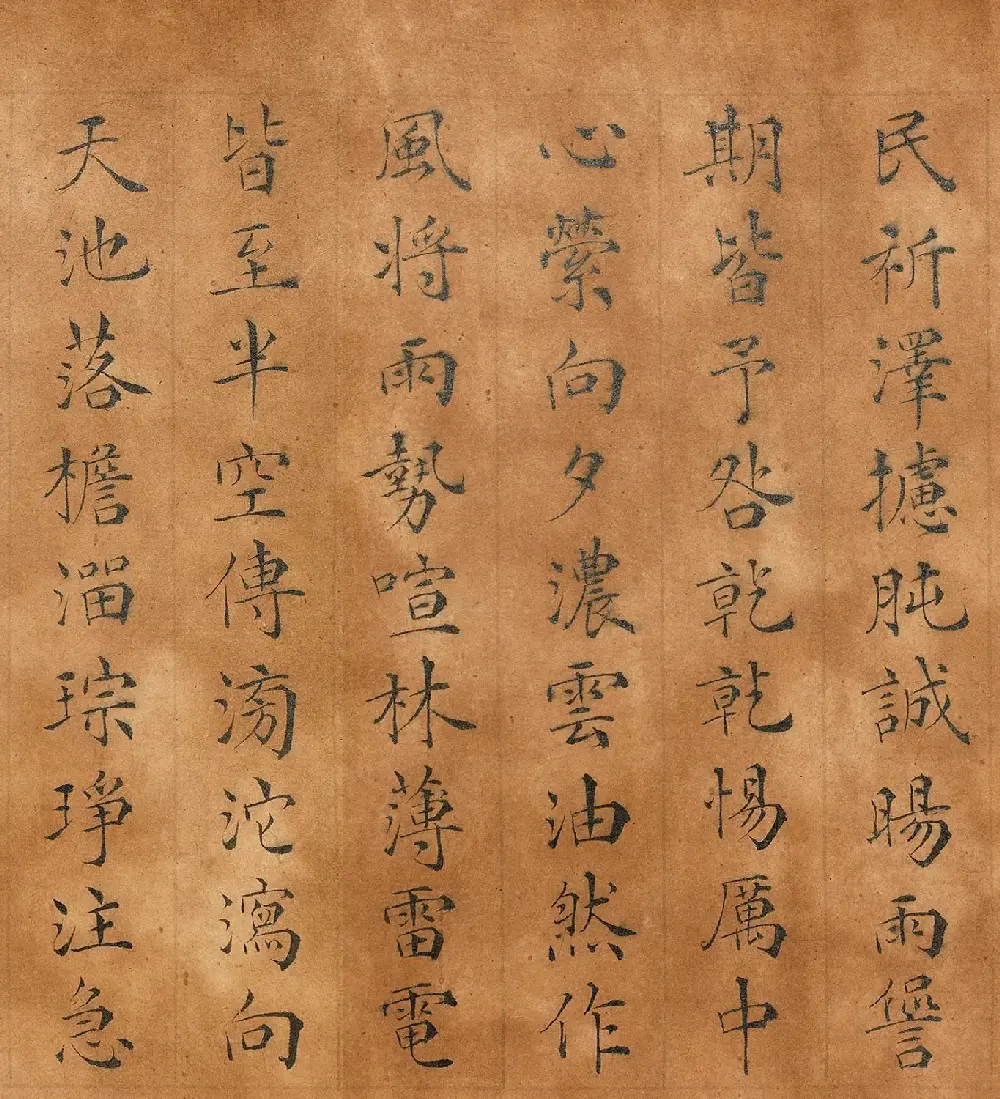 民祈澤攄肫誠暘雨諐
期皆予咎乾乾惕厲中
心縈向夕濃雲油然作
風将雨勢喧林薄雷電
皆至半空傳滂沱瀉向
天池落檐溜琮琤注急